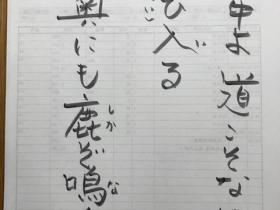 中よ道こそな
ひ入る
奥にも鹿ぞ鳴
しか
な